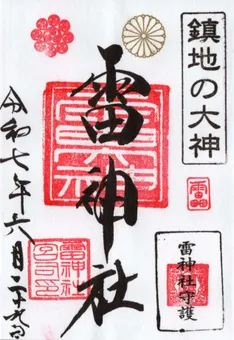 鎮地の大神
雷神社
雷神社守護
令和七年六月二十九日